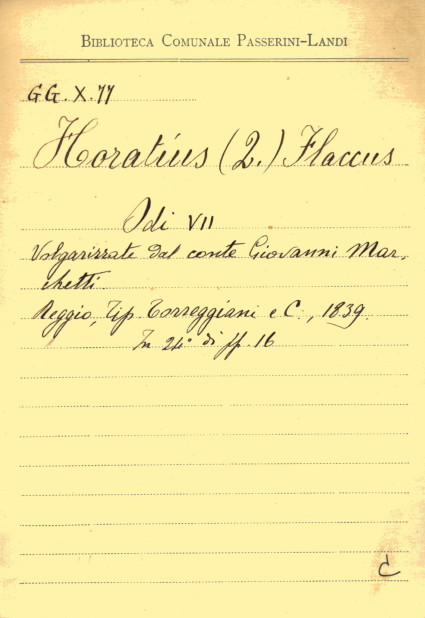 BIBLIOTECA COMUNALE PASSERINI-LANDI
GG.X.77
Horatius (2.) Flaccus
Odi VII
Volgarizzate dal conte Giovanni Mar-
chetti.
Reggio, Tip. Torreggiani e C., 1839.
In 24° di pp. 16